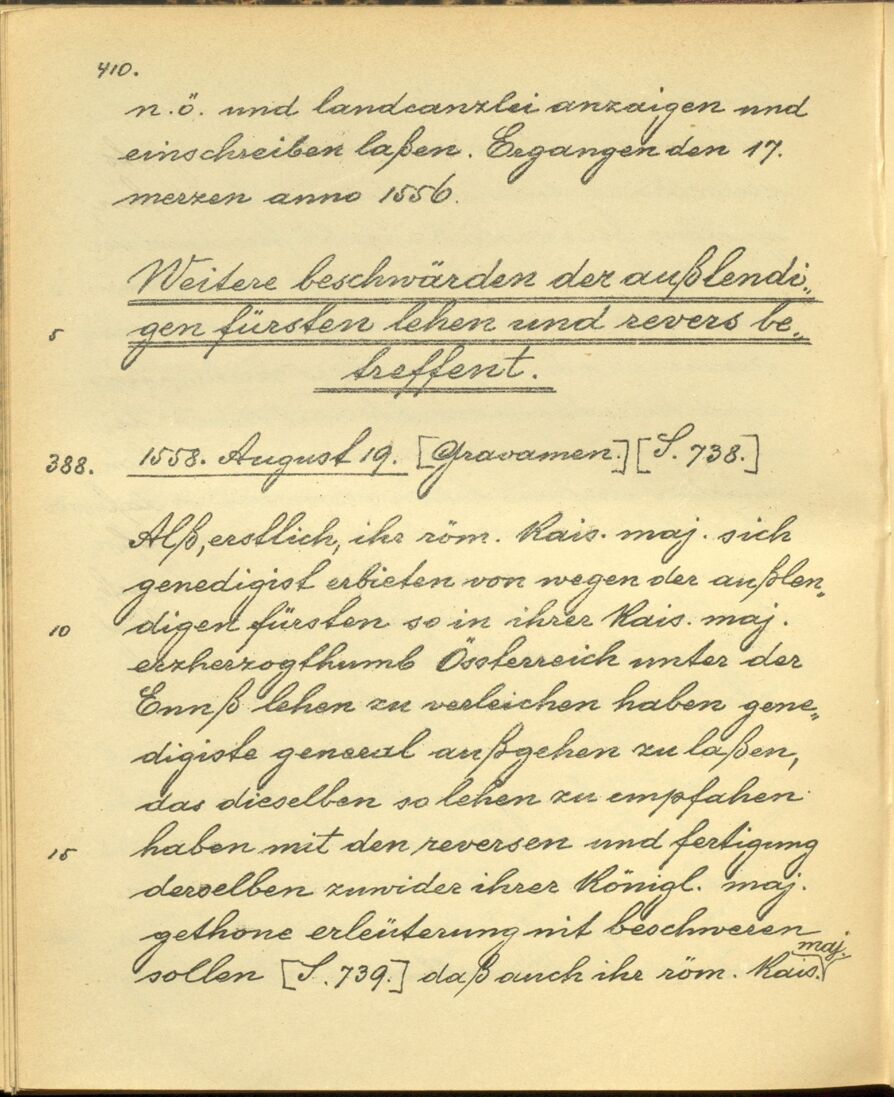 410.
n.ö. und landcanzlei anzaigen und
einschreiben laßen. Ergangen den 17.
merzen anno 1556.
Weitere beschwärden der außlendi„
5 gen fürsten lehen und revers be„
treffent.
388. 1558. August 19. [Gravamen.] [S. 738.]
Alß, erstlich, ihr röm. Kais. maj. sich
genedigist erbieten von wegen der außlen„
10 digen fürsten so in ihrer Kais. maj.
erzherzogthumb Össterreich unter der
Ennß lehen zu verleichen haben gene„
digiste general außgehen zu laßen,
das dieselben so lehen zu empfahen
15 haben mit den reversen und fertigung
derselben zuwider ihrer Königl. maj.
gethone erleüterung nit beschweren
sollen [S. 739.] daß auch ihr röm. Kais. maj.